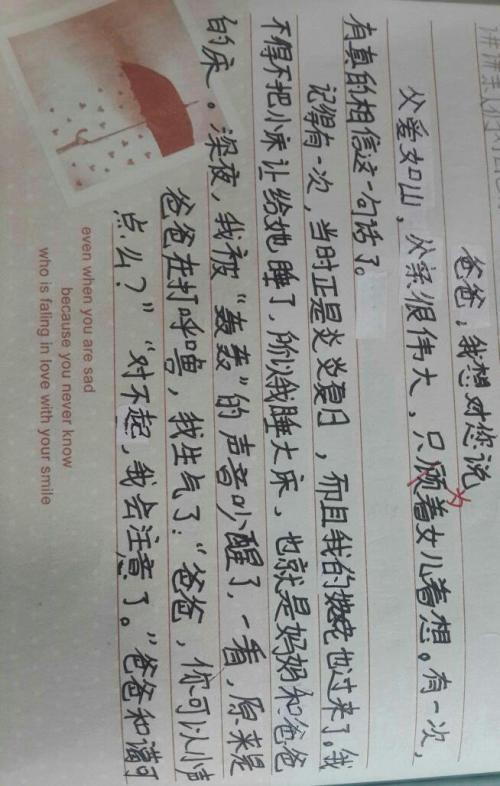 爸爸，我想对您说
父爱如山，父亲很伟大，只顾着为女儿着想。有一次，
有真的相信这一句话了。
记得有一次，当时正是炎炎夏日，而且我的姥姥也过来了。我
不得不把小床让给她睡了，所以我睡大床，也就是妈妈和爸爸
的床。深夜，我被“轰轰”的声音吵醒了，一看，原来是
爸爸在打呼噜，我生气了：“爸爸，你可以小声
点么？”“对不起，我去注意了。”爸爸和蔼可
even when you are sad
because you never know
who is falling in love with your smile